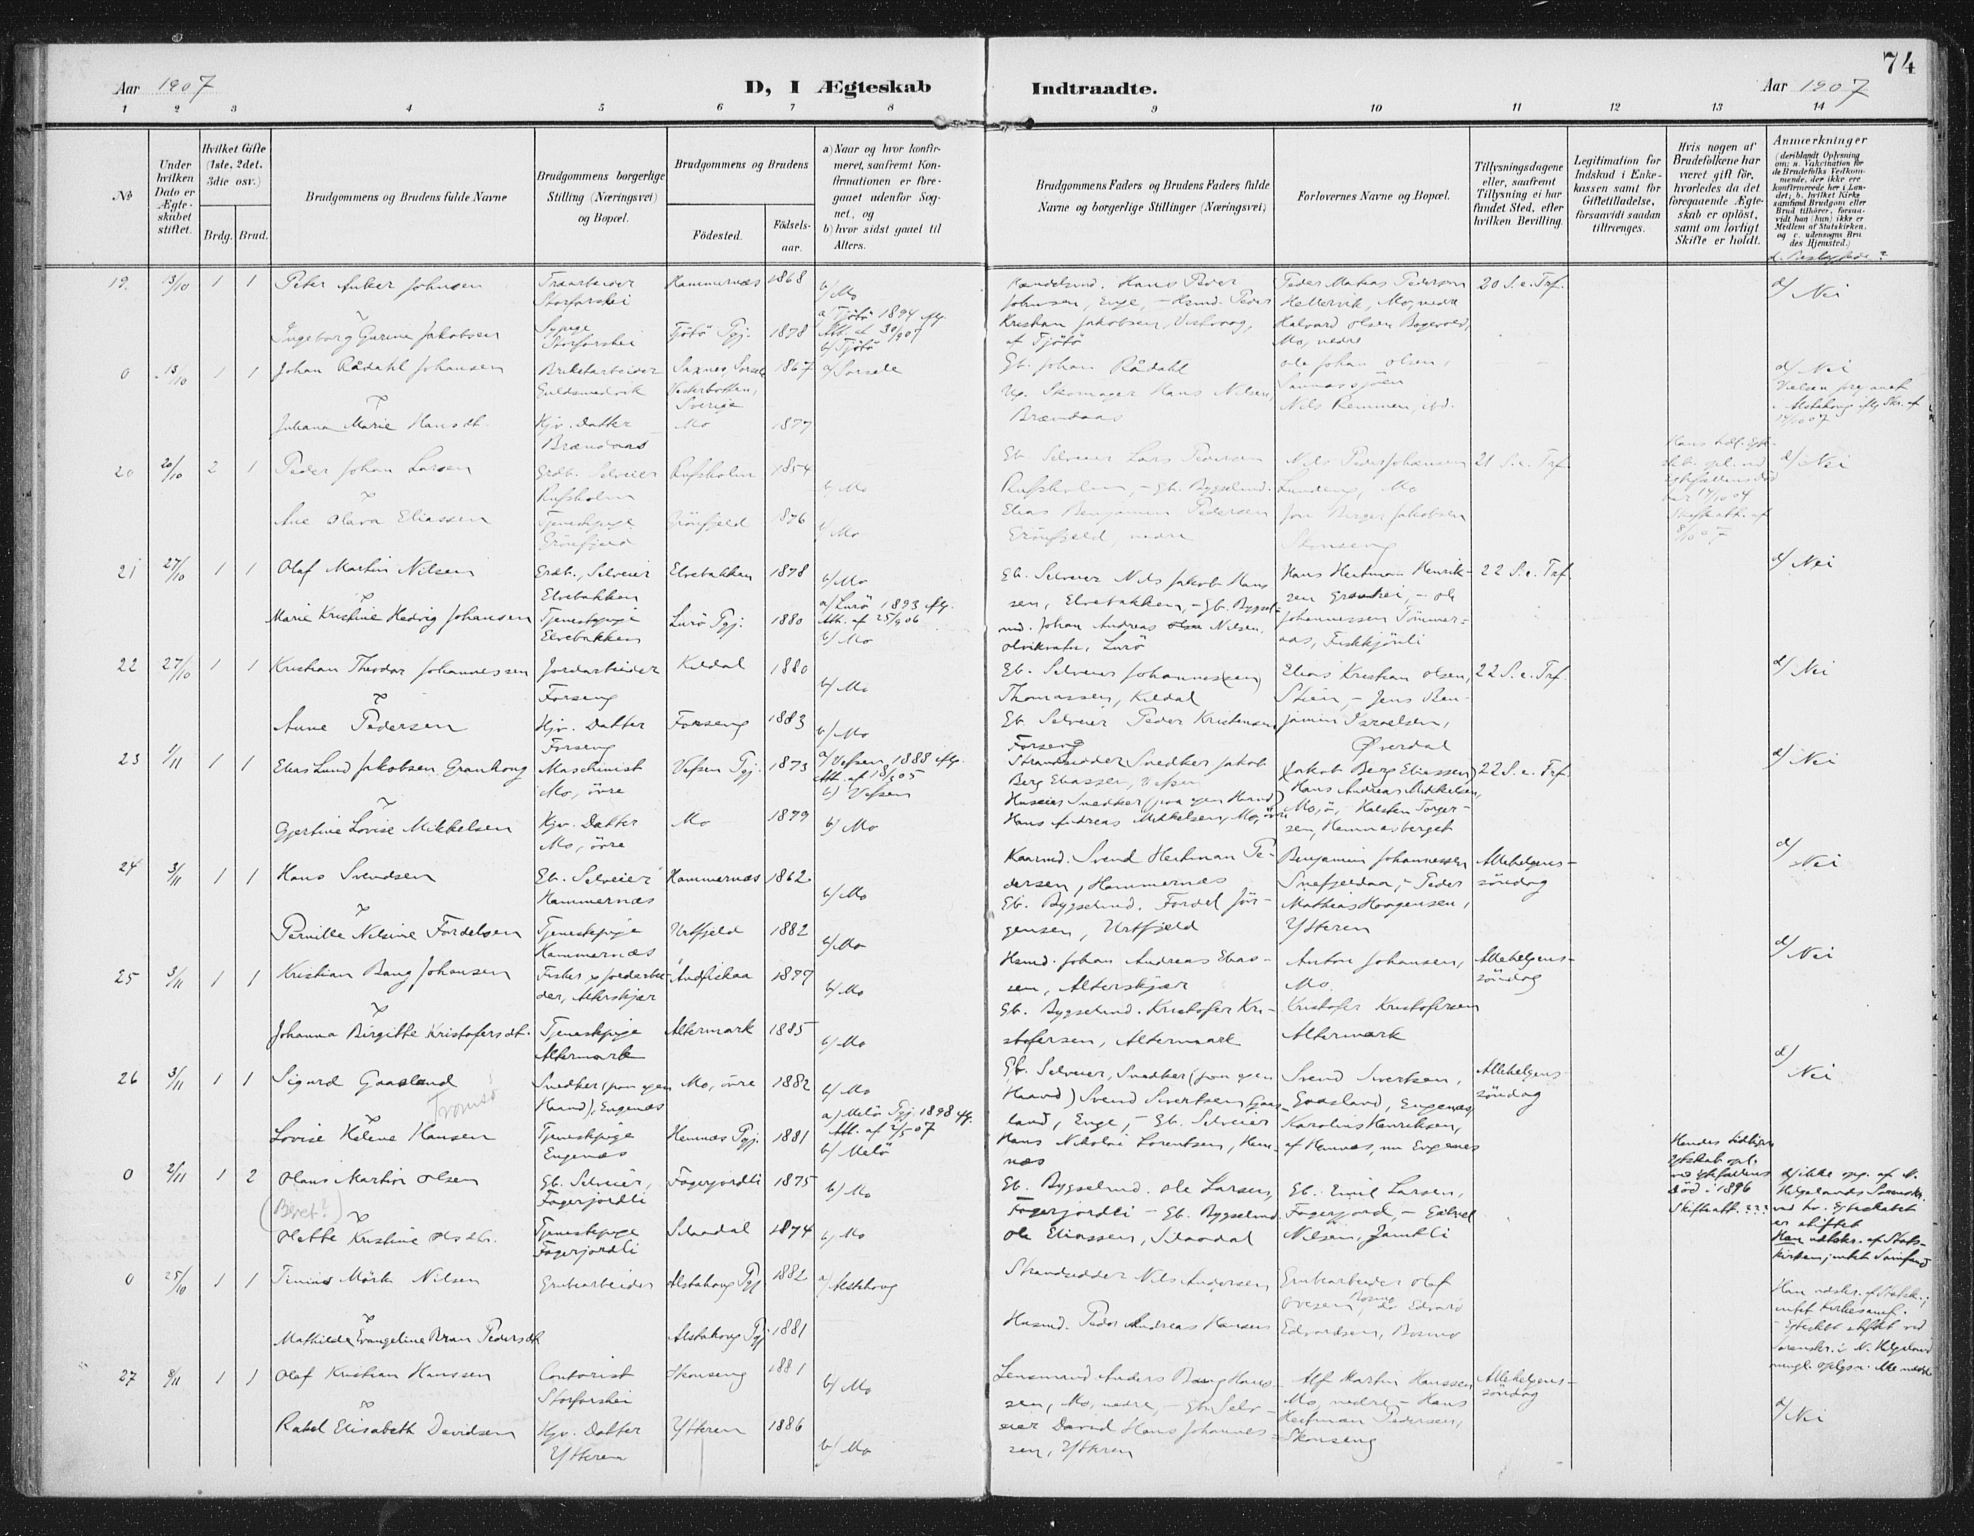 74
Aar 1907 D, I Ægteskab Indtraadte. Aar 1907
1 2 3 4 5 6 7 8 9 10 11 12 13 14
No
Under hvilken Dato er Ægteskabet stiftet.
Hvilket Gifte (1ste, 2det, 3die osv.)
Brdg. Brud.
Brudgommens og Brudens fulde Navne
Brudgommens borgerlige Stilling (Næringsvei) og Bopæl.
Brudgommens og Brudens
Födested. Födselsaar.
a) Naar og hvor konfirmeret, saafremt Konfirmationen er foregaaet udenfor Sognet, og
b) hvor sidst gaaet til Alters.
Brudgommens Faders og Brudens Faders fulde Navne og borgerlige Stillinger (Næringsvei)
Forlovernes Navne og Bopæl.
Tillysningsdagene eller, saafremt Tillysning ei har fundet Sted, efter hvilken Bevilling.
Legitimation for Indskud i Enkekassen samt for Giftetilladelse, forsaavidt saadan tiltrænges.
Hvis nogen af Brudefolkene har været gift før, hvorledes da det foregaaende Ægteskab er oplöst, samt om lovligt Skifte er holdt.
Anmærkninger
(deriblandt Oplysning om: a. Vakcination for de Brudefolks Vedkommende, der ikke ere konfirmerede her i Landet; b. hvilket Kirkesamfund Brudgom eller Brud tilhörer, forsaavidt han (hun) ikke er Medlem af Statskirken, og c. udensogns Brudes Hjemsted.)
19. 13/10 1 1 Peter Anker Johnsen
Storforshei
Hammernæs 1868 b/ Mo
Hans Peder
Johnsen, Enge, - Husmd. Peder
Kristian Jakobsen,
af Tjötö
Peder Matias Pedersen
Mo, nedre
Halvard Olsen
Mo, nedre
20 S. e. Trf. d/ Nei
Ingeborg Gurine Jakobsen
Storforshei
Tjötö Pgj. 1878
a/ Tjötö 1894 eflg.
Att. af 30/9 07
b/ Tjötö
0 13/10 1 1 Johan Rådahl Johansen
Guldsmedvik
Saxnes, Sorsele
Vesterbotten,
Sverige
1867 a/ Sorsele
Gb. Johan Rådahl
Up. Skomager Hans Nilsen,
Brændaas
Ole Johan Olsen,
Nils Remmen, ibd.
d/ Nei
Juliana Marie Hansdt.
Hjv. Datter
Brændaas
Mo 1877
20 20/10 2 1 Peder Johan Larsen
Grdb. Selveier
Rufsholm
Rufsholm 1854 b/ Mo
Gb. Selveier Lars Pedersen
Rufsholm, - Gb. Bygselmd.
Elias Benjamin Pedersen
Grönfjeld, nedre
Nils Peder Johansen
Lundeng, Mo
Jon Birger Jakobsen
Skonseng
21 S. e. Trf. d/ Nei
Ane Olava Eliassen
Tjenestepige
Grönfjeld
Grönfjeld 1876 b/ Mo
21 27/10 1 1 Olaf Martin Nilsen
Grdb., Selveier
Elvebakken
Elvebakken 1878 b/ Mo
Gb. Selveier Nils Jakob Hansen,
Elvebakken, - Gb. Bygselmd.
Johan Andreas Nilsen,
Olvikvatn, Lurö
Hans Heitman Henriksen
Granhei, - Ole
Johannessen Tömmeraas,
Fiskkjönli
22 S. e. Trf. d/ Nei
Marie Kristine Hedvig Johansen
Tjenestepige
Elvebakken
Lurö Pgj. 1880
a/ Lurö 1893 eflg.
Att. af 25/9 06
b/ Mo
22 27/10 1 1 Kristian Theodor Johannessen
Jordarbeider
Forseng
Kildal 1880 b/ Mo
Gb. Selveier Johannes(sen)
Thomassen, Kildal
Gb. Selveier Peder Kristensen
Forseng
Elias Kristian Olsen,
Stien, - Jens Benjamin
Israelsen,
Øverdal
22 S. e. Trf. d/ Nei
Anne Pedersen
Hjv. Datter
Forseng
Forseng 1883 b/ Mo
23 1/11 1 1 Elias Lund Jakobsen Granhoug
Maschinist
Mo, övre
Vefsen Pgj. 1873
a/ Vefsen, 1888 eflg.
Att. af 18/3 05
b) Vefsen
Strandsidder Snedker Jakob
Berg Eliassen, Vefsen
Huseier Snedker (paa egen Haand)
Hans Andreas Mikkelsen, Mo, övre
(Jakob Berg Eliassen)
Hans Andreas Mikkelsen,
Mo, ö, Halsten Torgersen,
Hammasberget
22 S. e. Trf. d/ Nei
Gjertine Lovise Mikkelsen
Hjv. Datter
Mo, övre
Mo 1879 b/ Mo
24 3/11 1 1 Hans Svendsen
Gb. Selveier
Hammernæs
Hammernæs 1862 b/ Mo
Kaarmd. Svend Heitman Pedersen,
Hammernæs
Gb. Bygselmd. Fordel Jörgensen,
Urtfjeld
Benjamin Johannessen
Snefjeldaa, - Peder
Mathias Haagensen,
Ytteren
Allehelgenssöndag d/ Nei
Pernille Nilsine Fordelsen
Tjenestepige
Hammernæs
Urtfjeld 1882 b/ Mo
25 3/11 1 1 Kristian Bang Johansen
Fisker & Jordarbeider,
Alterskjær
Andfiskaa 1877 b/ Mo
Husmd. Johan Andreas Eliassen,
Alterskjær
Gb. Bygselmd. Kristofer Kristofersen,
Altermark
Anton Johansen,
Mo.
Kristofer Kristofersen
Altermark
Allehelgenssöndag d/ Nei
Johanna Birgitte Kristofersdt.
Tjenestepige
Altermark
Altermark 1885 b/ Mo
26 3/11 1 1 Sigurd Gaasland
Tromsö
Snedker (paa egen
Haand), Engenæs
Mo, övre 1882 b/ Mo
Gb. Selveier, Snedker (paa egen
Haand) Svend Sivertsen Gaasland,
Enge, - Gb. Selveier
Hans Nikolai Lorentsen, Hemnæs
Svend Sivertsen,
Gaasland, Engenæs,
Karolius Henriksen,
af Hemnæs, nu Engenæs
Allehelgenssöndag d/ Nei
Lovise Helene Hansen
Tjenestepige
Engenæs
Hemnæs Pgj. 1881
a/ Melö Pgj. 1898 eflg.
Att. af 2/5 07
b/ Melö
0 2/11 1 2 Hans Martin Olsen
(Beret?)
Gb. Selveier,
Fagerjordli
Fagerjordli 1875 b/ Mo
Gb. Bygselmd. Ole Larsen,
Fagerjordli - Gb. Bygselmd.
Ole Eliassen, Silaadal
Gb. Emil Larsen,
Fagerjord, -
Nilsen, Jamtli
Hendes tidligere
Egteskab opl.
ved Egtefællens
död i 1896
Skifteatt. ???
d/ ikke opg. af N.
Helgelands Sorenskr.
ved hv. Egteskabet
er stiftet
Han udtskr. af Statskirken;
intet Samfund
Olette Kristine Olsdt.
Tjenestepige
Fagerjordli
Silaadal 1874 b/ Mo
0 25/10 1 1 Tinius Mörk Nilsen
Grubearbeider
Alstahoug Pgj. 1882 a/ Alstahoug
Strandsidder Nils Andersen
Husmd. Peder Andreas Hansen
Grubearbeider Olaf
Ovesen, Bosmo, do Edvard
Edvardsen, Bosmo
Han udskr. af Statsk.;
intet Kirkesamf.
- Egteskab stiftet ved
Sorenskr. i N. Helgeland
Mathilde Evangeline Bran Pedersdt.
Alstahoug Pgj. 1881
27 8/11 1 1 Olaf Kristian Hanssen
Contorist
Storforshei
Skonseng 1881 b/ Mo
Lensmand Anders Bang Hanssen,
Mo, nedre, - Gb. Selveier
David Hans Johannessen,
Ytteren
Alf Martin Hanssen
Mo, nedre - Hans
Heitman Pedersen,
Skonseng
Allehelgenssöndag d/ Nei
Rakel Elisabeth Davidsen
Hjv. Datter
Ytteren
Ytteren 1886 b/ Mo